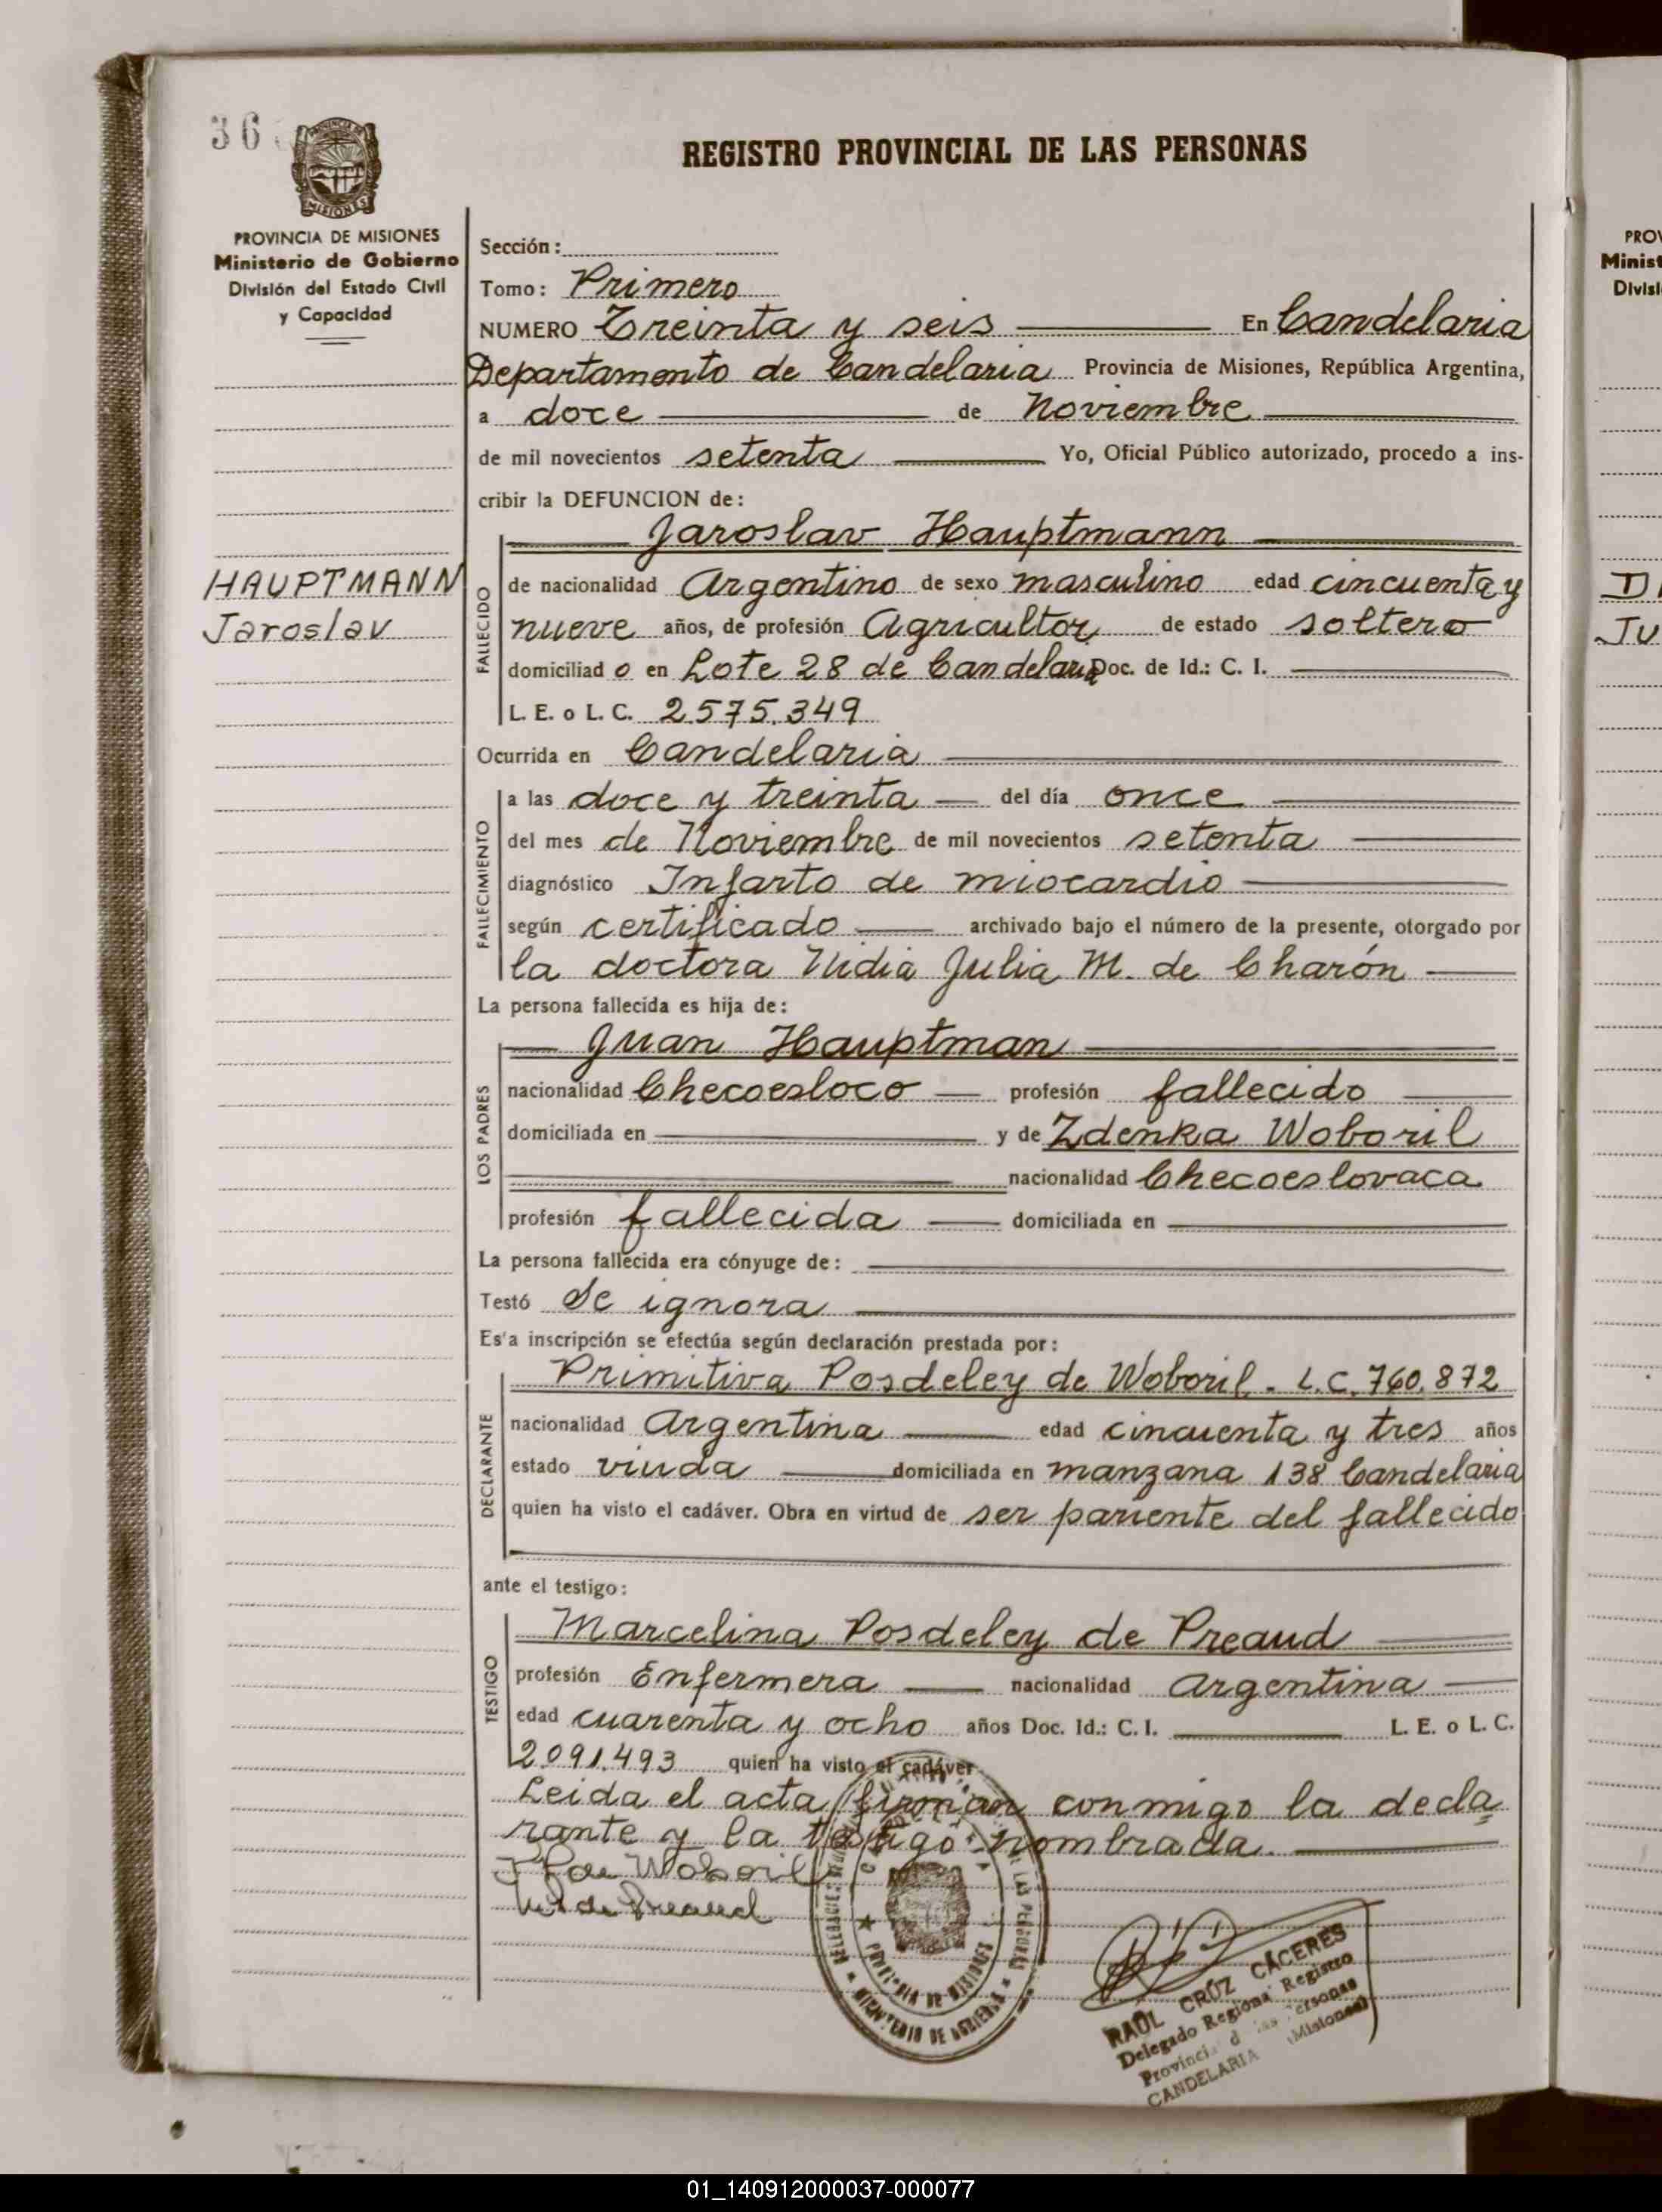 36
MISIONES
REGISTRO PROVINCIAL DE LAS PERSONAS
PROVINCIA DE MISIONES
Ministerio de Gobierno
División del Estado Civil
y Capacidad
HAUPTMANN
Jaroslav
Sección:
Tomo: Primero
NUMERO Treinta y seis En Candelaria
Departamento de Candelaria Provincia de Misiones, República Argentina,
a doce de Noviembre
de mil novecientos setenta Yo, Oficial Público autorizado, procedo a ins-
cribir la DEFUNCION de:
FALLECIDO
Jaroslav Hauptmann
de nacionalidad Argentino de sexo masculino edad cincuenta y
nueve años, de profesión Agricultor de estado soltero
domiciliad o en Lote 28 de Candelaria Doc. de Id.: C. I.
L. E. o L. C. 2.575.349
Ocurrida en Candelaria
FALLECIMIENTO
a las doce y treinta del día once
del mes de Noviembre de mil novecientos setenta
diagnóstico Infarto de miocardio
según certificado archivado bajo el número de la presente, otorgado por
la doctora Nidia Julia M. de Charón
La persona fallecida es hija de:
LOS PADRES
Juan Hauptman
nacionalidad Checoesloco profesión fallecido
domiciliada en y de Zdenka Woboril
nacionalidad Checoeslovaca
profesión fallecida domiciliada en
La persona fallecida era cónyuge de:
Testó Se ignora
Es'a inscripción se efectúa según declaración prestada por:
DECLARANTE
Primitiva Posdeley de Woboril - L.C. 760.872
nacionalidad Argentina edad cincuenta y tres años
estado viuda domiciliada en manzana 138 Candelaria
quien ha visto el cadáver. Obra en virtud de ser pariente del fallecido
ante el testigo:
TESTIGO
Marcelina Posdeley de Preaud
profesión Enfermera nacionalidad Argentina
edad cuarenta y ocho años Doc. Id.: C. I. L. E. o L. C.
2.091.493 quien ha visto el cadáver
Leida el acta firman conmigo la decla
rante y la testigo nombrada.
de Woboril
de Preaud
PROVINCIA DE MISIONES
MINISTERIO DE GOBIERNO
RAÚL CRUZ CÁCERES
Delegado Regional Registro
Provincial de las Personas
CANDELARIA (Misiones)
PROV
Minist
Divisi
D
Ju
01_140912000037-000077